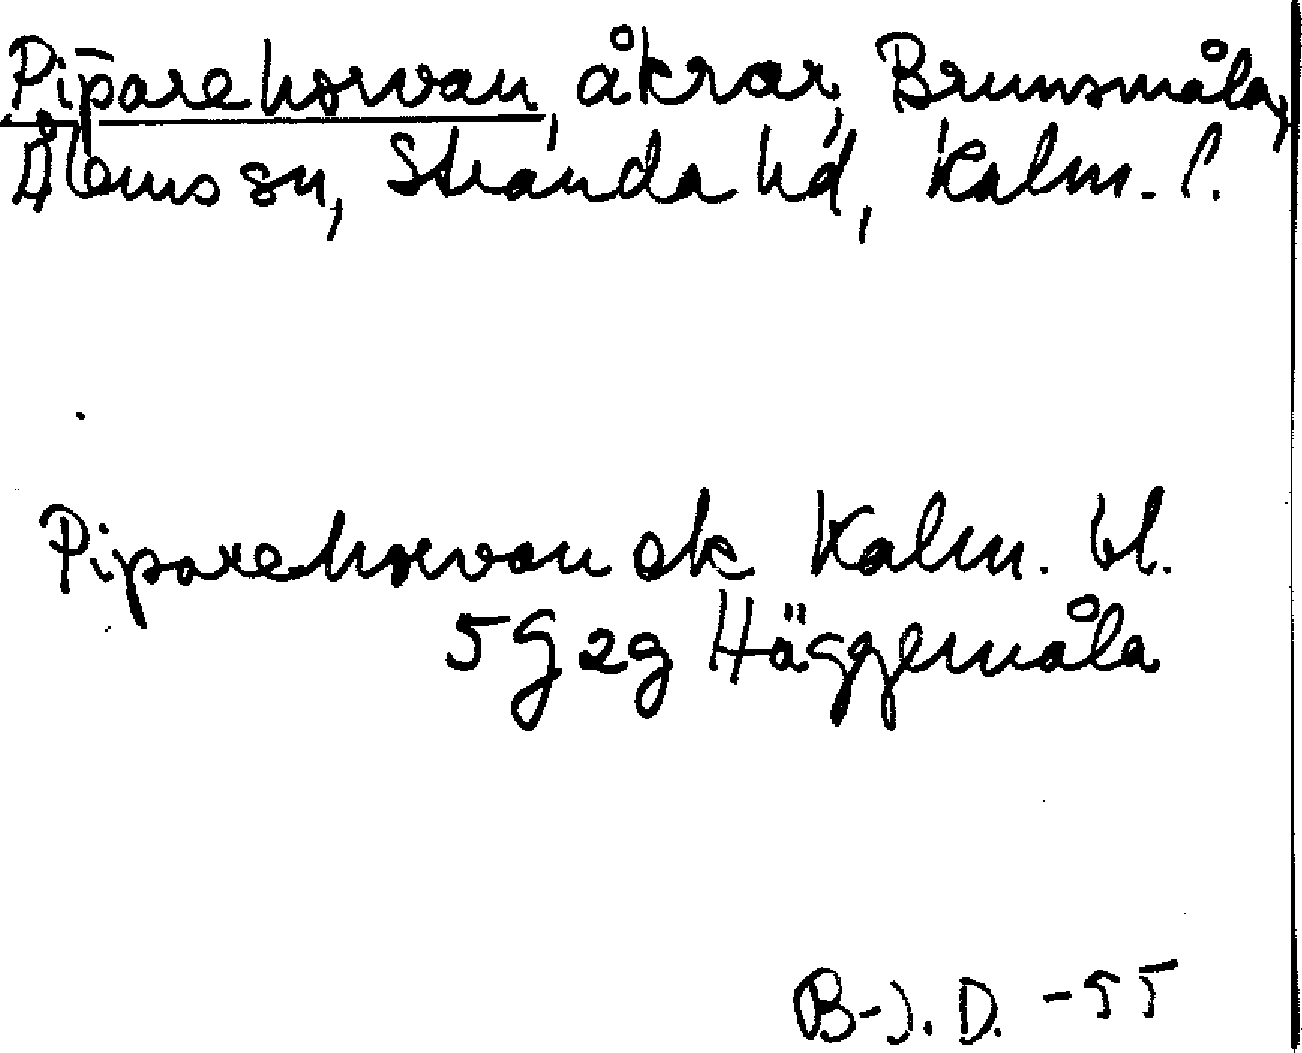 Piparehorvan, åkrar, Brunsmåla,
Ålems sn, Stranda hd, Kalm. l.
Piparehorvan ek Kalm. bl.
5 G 2g Häggemåla
B-J. D. -55